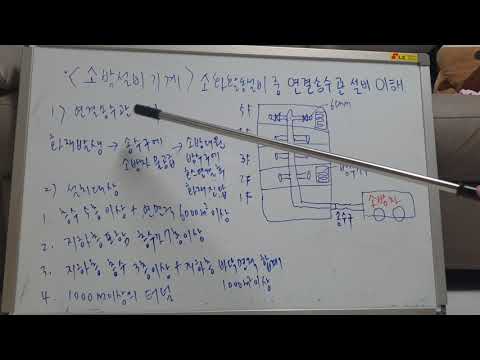 <소방설비기계> 소화활동설비 중 연결송수관 설비 이해
1) 연결송수관
화재발생 → 송수구에 → 소방대원
소방차 물공급 방수구에
호스연결
화재진압
2) 설치대상
1. 층수 5층이상 + 연면적 6000m² 이상
2. 지하층 포함 층수가 7층이상
3. 지하층 층수 3층이상 + 지하층 바닥면적 합계
1000m² 이상
4. 1000m이상의 터널
5F
4F
3F
2F
1F
방수구
송수구
소방차
LG